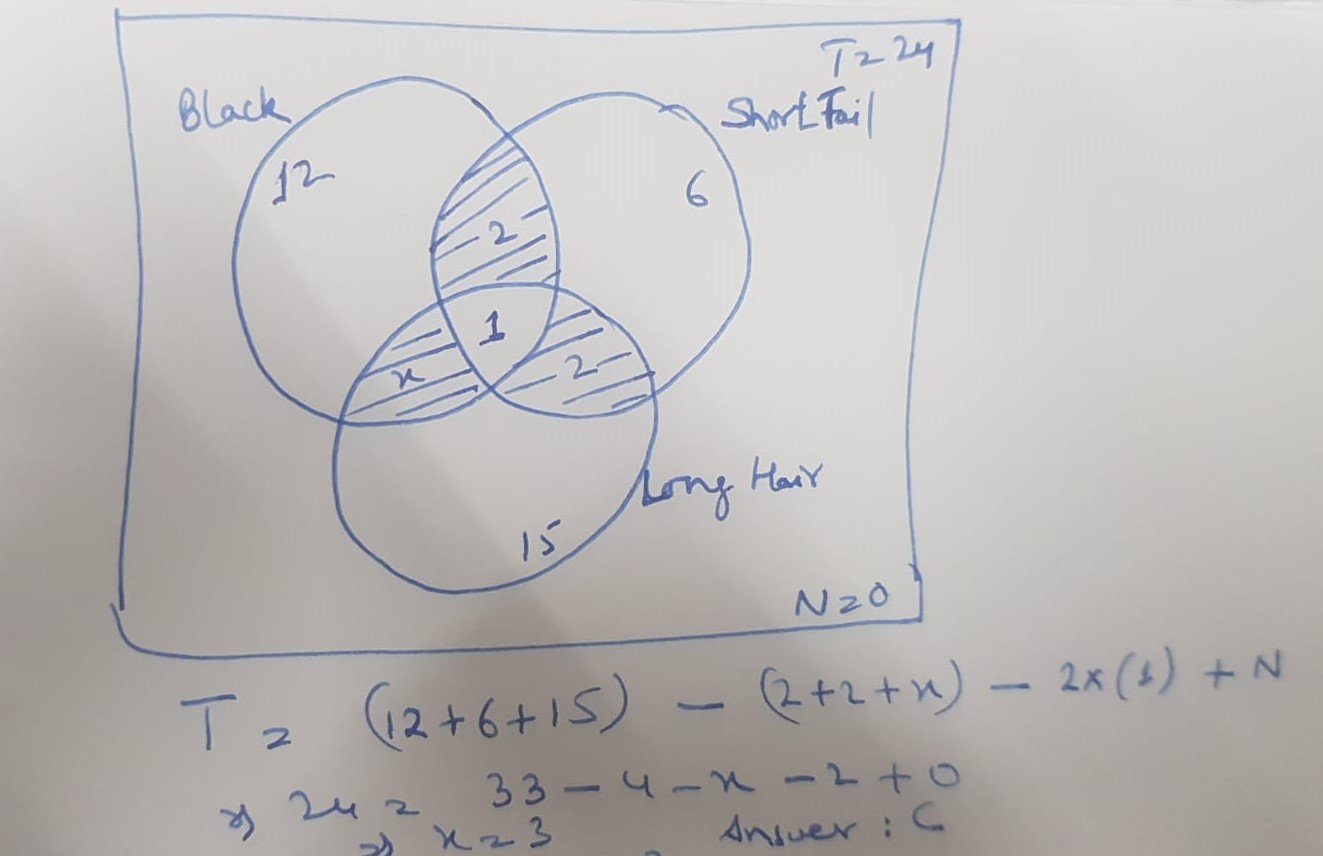 T = 24
Black
Short Tail
12
6
2
1
x
2
Long Hair
15
N = 0
T = (12+6+15) - (2+2+x) - 2x(1) + N
⇒ 24 = 33 - 4 - x - 2 + 0
⇒ x = 3 Answer : C